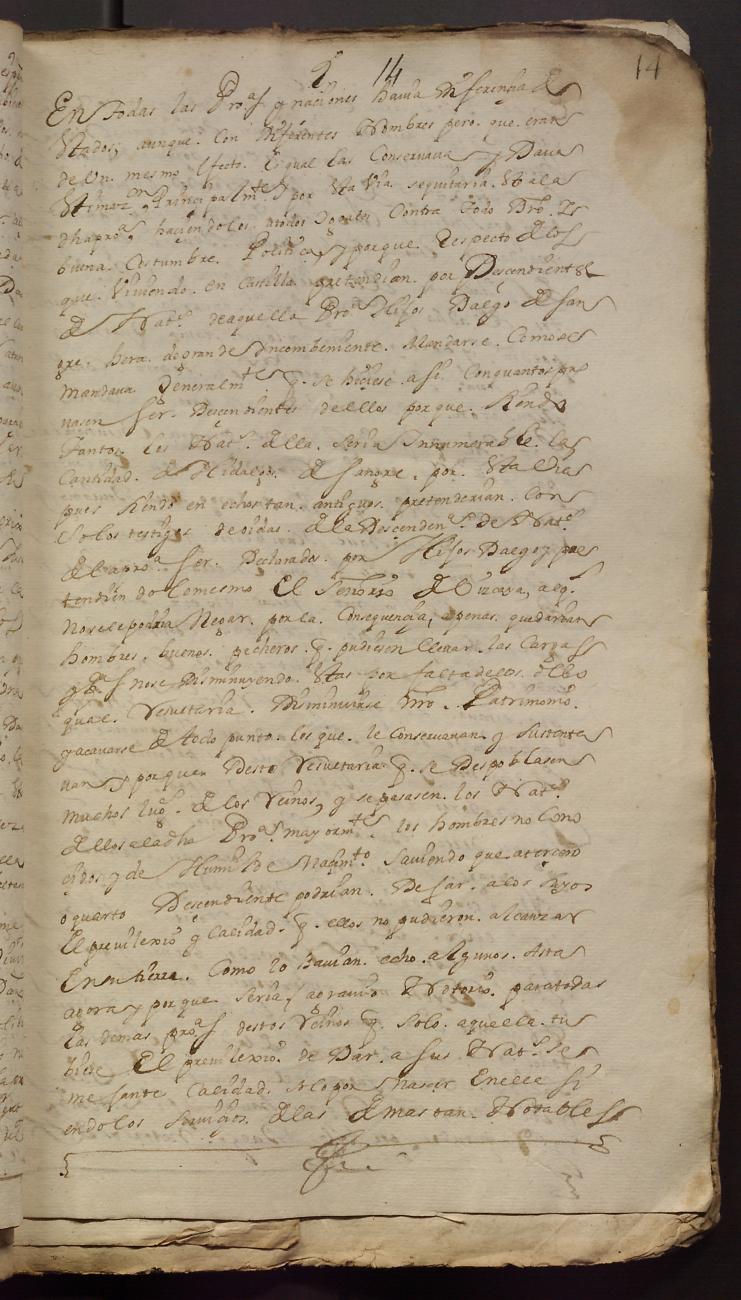 14
14
En todas las Pro.as y naciones havia diferencia de
estados, aunque. Con diferentes Nombres pero. que. eran
de Un. mesmo efecto. El qual las Conservava y Dava
Principalm.te y por esta Via. seguitaria. estala
dha pro.a haciendolos atodos Yguales Contra todo Dro. Y
buena. Costumbre. Politica y porque. Respecto de los
que. Viviendo. en Castilla pretendian. por Descendientes
de Nat.s de aquella Pro.a Hijos Dalgo de san
gre. hera. de grande Yncombeniente. Mandarse. Como se
mandava Generalm.te q. se hiciese. asi. Con quantos pro
vasen ser. Descendientes de ellos porque. siendo
tantos los Nat.s della. seria Innumerable. la
Cantidad. de Hidalgos. de sangre. por. esta Via
pues siendo en echos tan. antiguos. pretenderian. Con
solo testigos de oidas. de la Descenden.a de Nat.s
de la pro.a ser. Declarados. por Hijos Dalgo y pre
tendiendo lo mesmo El Señorio de Vizcaya, a eq.
no se le podria Negar. por la. Consequencia, apenas. quedarian
hombres. buenos. pecheros. q. pudiesen llevar. las Cargas
nose Disminuyendo. estas por falta de los. dellos
qual Resultaria. Disminuirse Nro. Patrimonio.
y acavarse de todo punto. los que. le Conservavan. y sustenta
van y porque Desto Resultaria q. se Despoblasen
muchos lug.s de los Reinos, y se pasasen. los Nat.s
dellos ala dha Pro.a mayorm.te los hombres no Cono
cidos y de Humilde Nacim.to Saviendo que atercero
o quarto Descendiente podrian. Dejar. a los suyos
El previlexio y Calidad. q. ellos no pudieron. alcanzar
En su tierra. Como lo havian. echo. algunos. Asta
agora y porque seria agravio Notorio. para todas
las demas pro.as destos Reinos q. solo. aquella. tu
biese El previlexio. de Dar. a sus Nat.s se
mejante Calidad. solo por Nacer En ella si
endo los servicios. de las demas tan. Notables